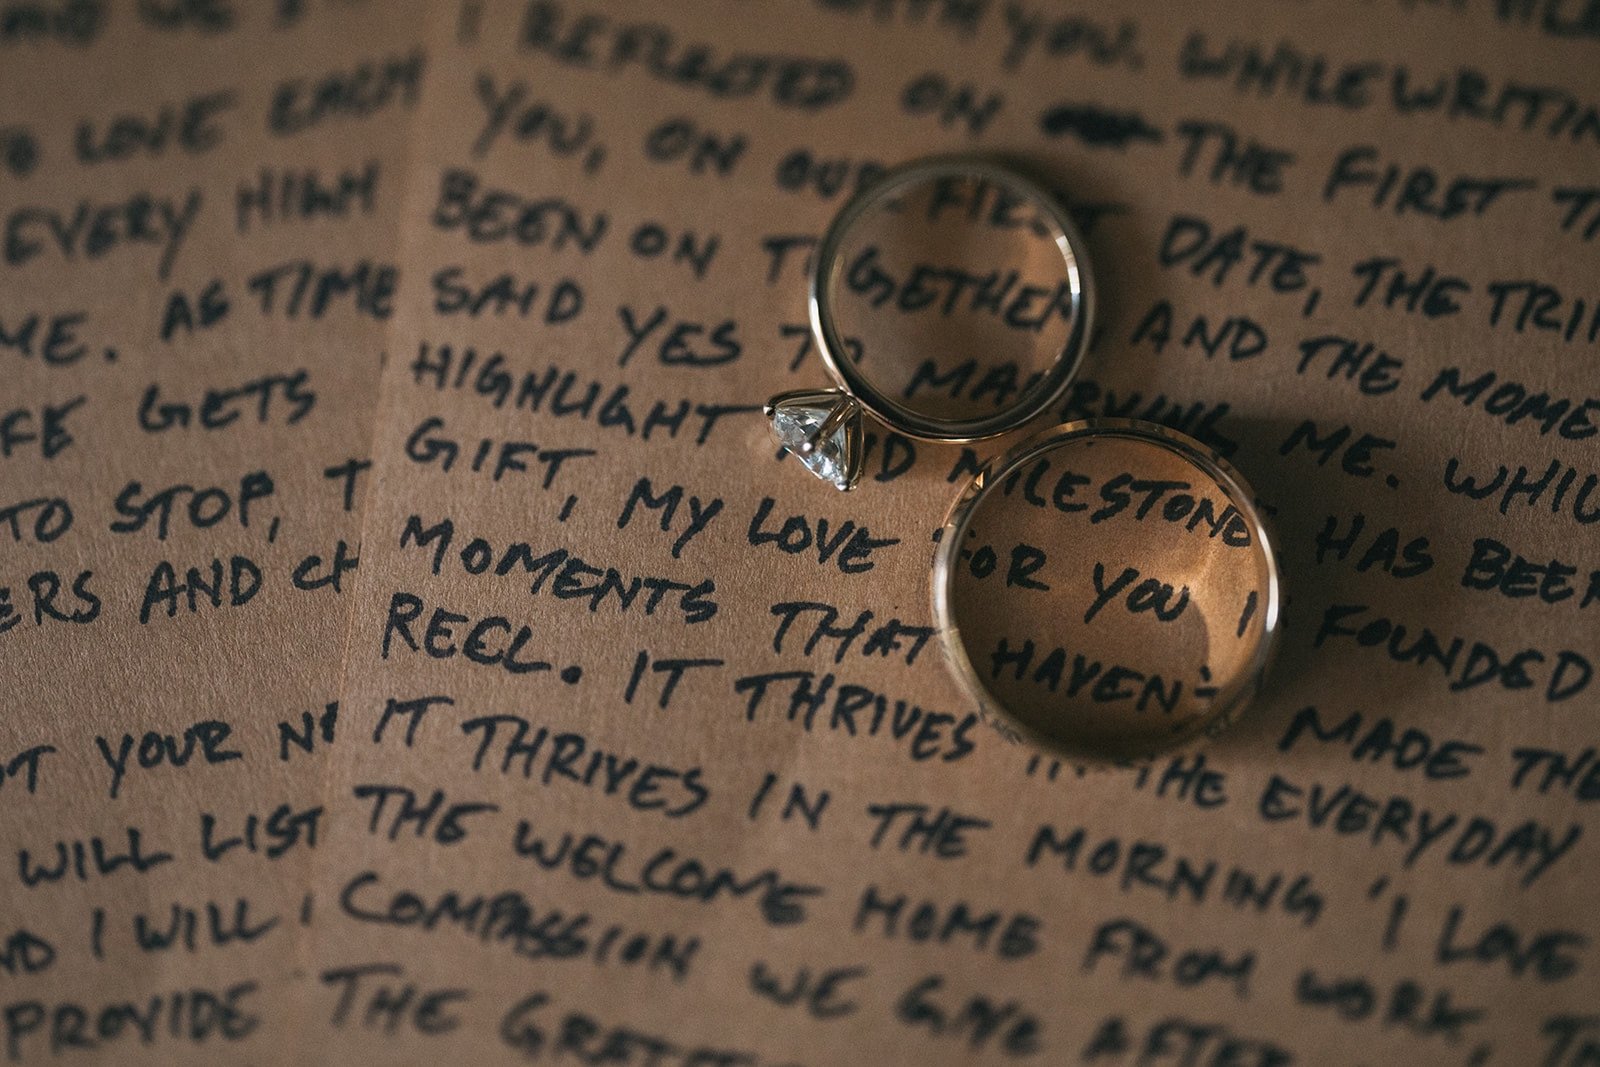 LOVE EACH
EVERY HIGH
ME. AS TIME
FE GETS
TO STOP, T
ERS AND CH
T YOUR NE
WILL LIST
ND I WILL
PROVIDE
WITH YOU. WHILE WRITIN
I REFLECTED ON THE FIRST TI
YOU, ON OUR FIRST DATE, THE TRIP
BEEN ON TOGETHER, AND THE MOME
SAID YES TO MARRYING ME. WHIL
HIGHLIGHT AND MILESTONE HAS BEEN
GIFT, MY LOVE FOR YOU IS FOUNDED
MOMENTS THAT HAVEN'T MADE THE
REEL. IT THRIVES IN THE EVERYDAY
IT THRIVES IN THE MORNING 'I LOVE
THE WELCOME HOME FROM WORK, TH
COMPASSION WE GIVE AFTER
THE GRAT